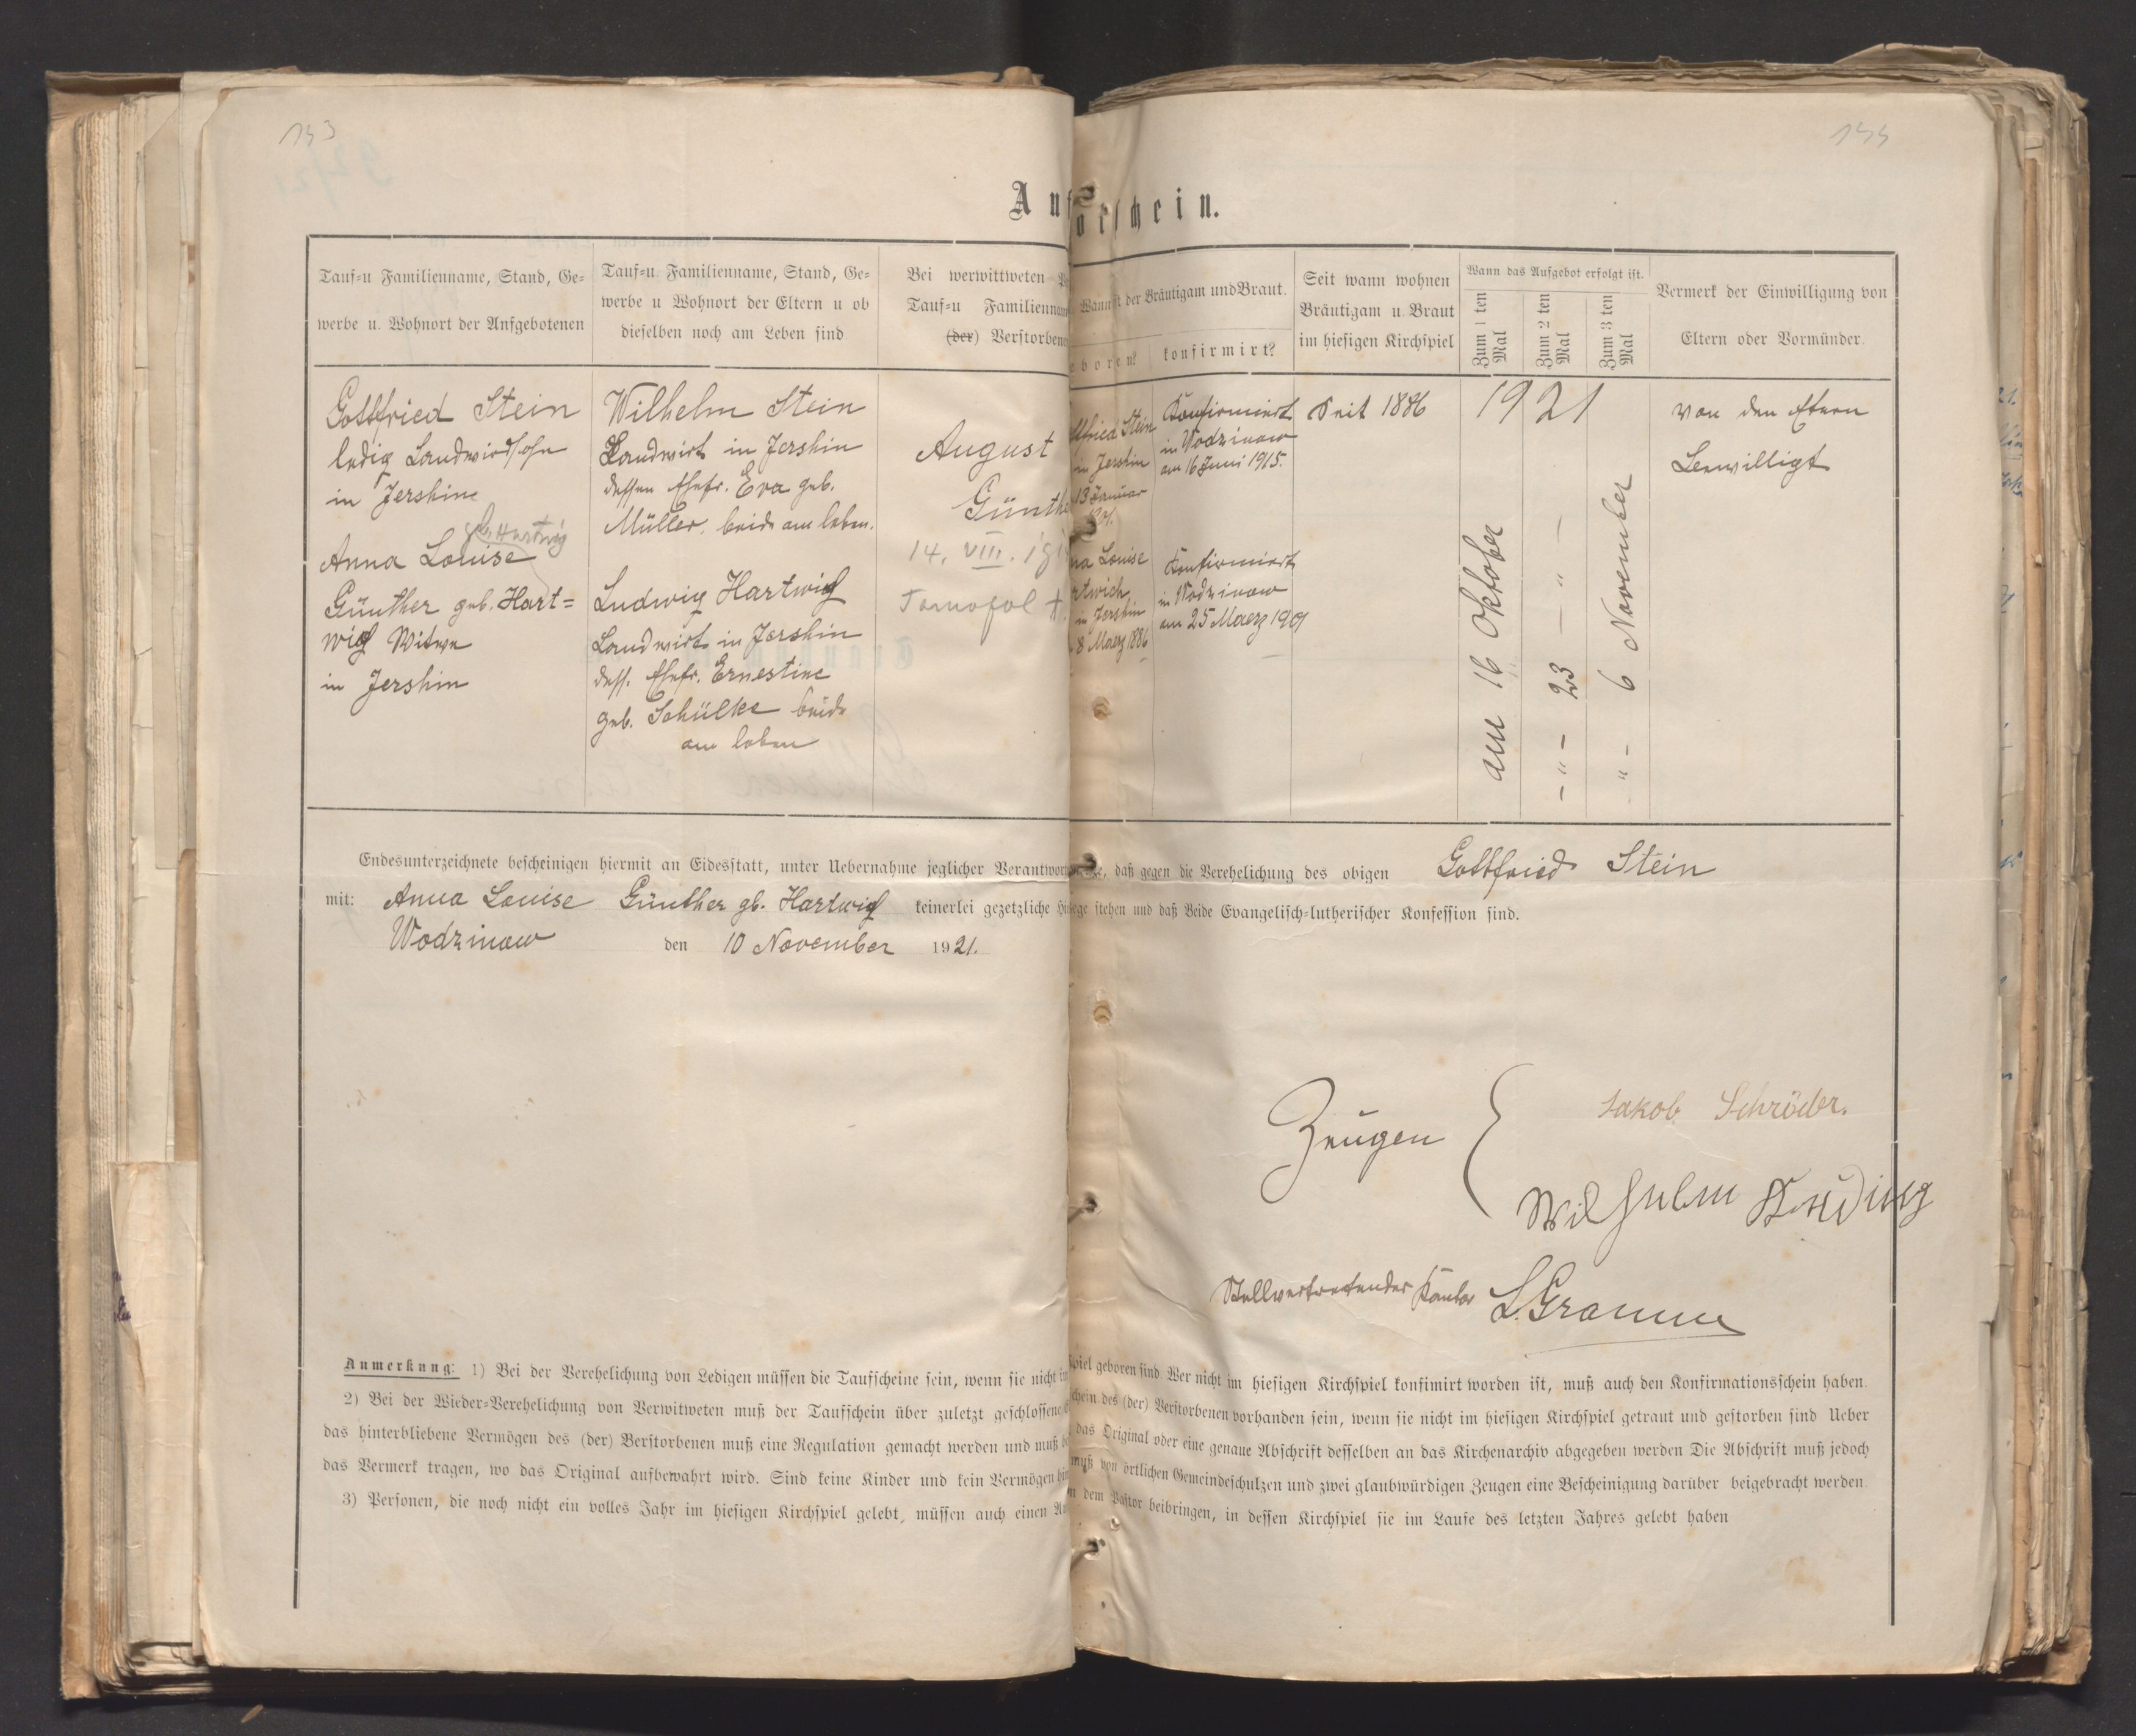 143
144
Auf
otschein.
Tauf=u Familienname, Stand, Ge=
werbe u. Wohnort der Aufgebotenen
Tauf=u. Familienname, Stand, Ge=
werbe u Wohnort der Eltern u ob
dieselben noch am Leben sind
Bei werwittweten
Tauf=u Familienname
(der) Verstorbene
Wann ist der Bräutigam und Braut.
geboren?
konfirmirt?
Seit wann wohnen
Bräutigam u. Braut
im hiesigen Kirchspiel
Wann das Aufgebot erfolgt ist.
Zum 1 ten
Mal
Zum 2 ten
Mal
Zum 3 ten
Mal
Vermerk der Einwilligung von
Eltern oder Vormünder.
Gottfried Stein
ledig Landwirdsohn
in Jershine
geb. Hartwig
Anna Louise
Günther geb. Hart=
wich Witwe
in Jershin
Wilhelm Stein
Landwirt in Jershin
dessen Ehefr. Eva geb.
Müller. beide am leben.
Ludwig Hartwich
Landwirt in Jershin
dess. Ehefr. Ernestine
geb. Schülke beide
am leben
August
Günthe
14. VIII. 191
Tarnopol †
ttfried Stein
in Jershin
13 Januar
Anna Louise
rtwich
in Jershin
8 Maerz 1886
Konfirmiert
in Wodzinow
am 16 Juni 1915.
Konfirmiert
in Wodzinow
am 25 Maerz 1901
Seit 1886
1921
am 16 Oktober
- " - 23 - " -
" - 6 November
von den Eltern
Bewilligt
Endesunterzeichnete bescheinigen hiermit an Eidesstatt, unter Uebernahme jeglicher Verantwort daß gegen die Verehelichung des obigen Gottfried Stein
mit: Anna Louise Günther gb. Hartwich keinerlei gezetzliche Hi ege stehen und daß Beide Evangelisch=lutherischer Konfession sind.
Wodzinow den 10 November 1921.
Zeugen
Jakob Schröder.
Wilhelm
Stellvertretender Kantor L. Gramm
Anmerkung: 1) Bei der Verehelichung von Ledigen müssen die Taufscheine sein, wenn sie nicht im spiel geboren sind. Wer nicht im hiesigen Kirchspiel konfimirt worden ist, muß auch den Konfirmationsschein haben.
2) Bei der Wieder=Verehelichung von Verwitweten muß der Taufschein über zuletzt geschlossene schein des (der) Verstorbenen vorhanden sein, wenn sie nicht im hiesigen Kirchspiel getraut und gestorben sind Ueber
das hinterbliebene Vermögen des (der) Verstorbenen muß eine Regulation gemacht werden und muß das Original oder eine genaue Abschrift desselben an das Kirchenarchiv abgegeben werden Die Abschrift muß jedoch
das Vermerk tragen, wo das Original aufbewahrt wird. Sind keine Kinder und kein Vermögen hin muß von örtlichen Gemeindeschulzen und zwei glaubwürdigen Zeugen eine Bescheinigung darüber beigebracht werden.
3) Personen, die noch nicht ein volles Jahr im hiesigen Kirchspiel gelebt, müssen auch einen Au n dem Pastor beibringen, in dessen Kirchspiel sie im Laufe des letzten Jahres gelebt haben